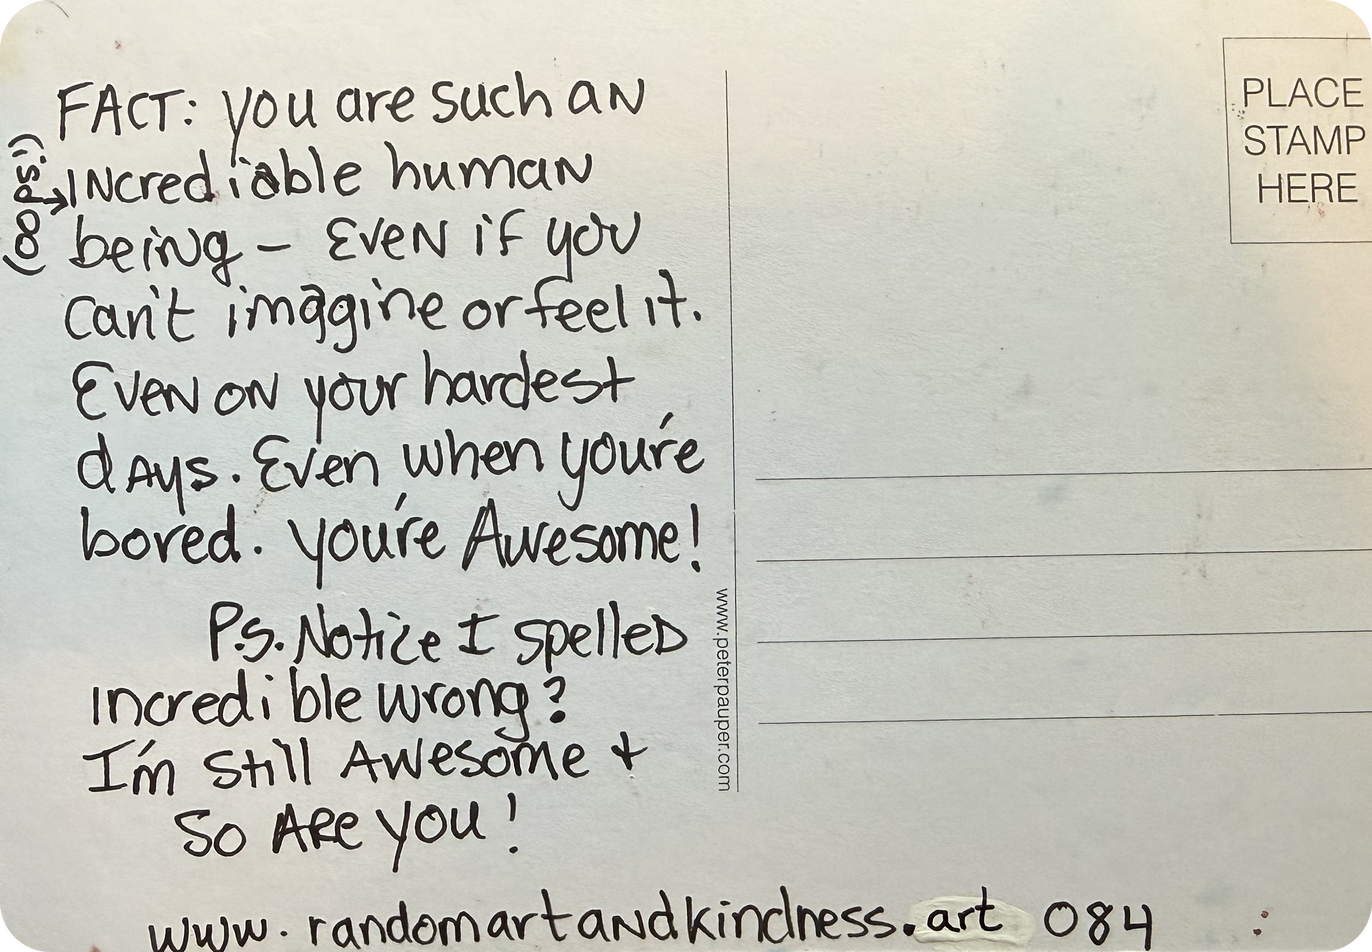 FACT: you are such an
(oops!) → Incrediable human
being – Even if you
can't imagine or feel it.
Even on your hardest
days. Even when you're
bored. you're Awesome!
P.S. Notice I spelled
incredible wrong?
I'm Still Awesome +
So Are you!
www.randomartandkindness.art 084
www.peterpauper.com
PLACE
STAMP
HERE